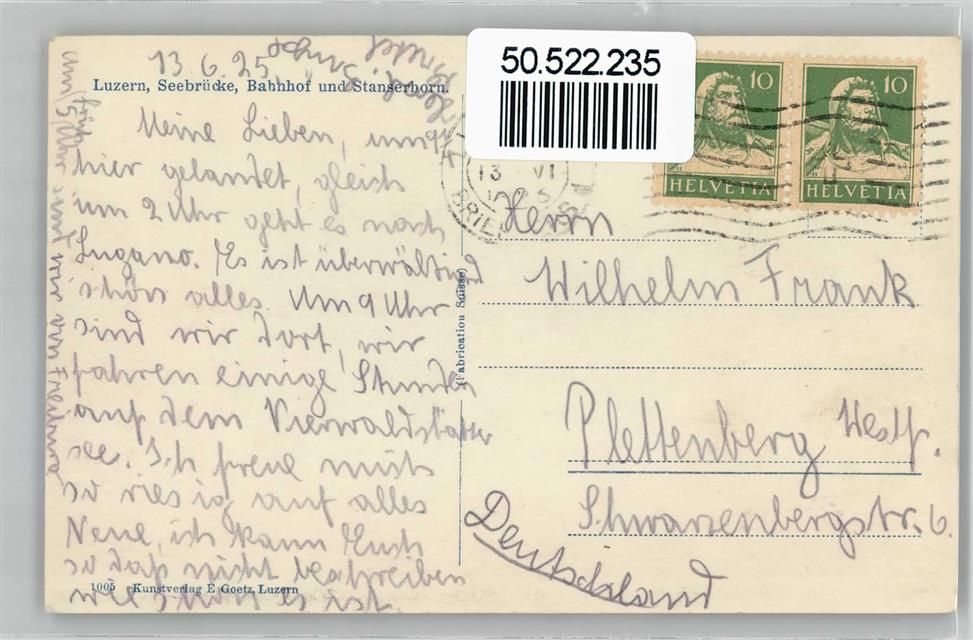 13.6.25.
Luzern, Seebrücke, Bahnhof und Stanserhorn.
Meine Lieben, um 9
hier gelandet, gleich
um 2 Uhr geht es nach
Lugano. Es ist überwältigend
schön alles. Um 9 Uhr
sind wir dort, wir
fahren einige Stunden
auf dem Vierwaldstätter
see. Ich freue mich
so riesig auf alles
Neue, ich kann Euch
so daß nicht beschreiben
wie schön es ist.
1005 Kunstverlag E Goetz, Luzern
früh
um 5 Uhr sind wir von
(Fabrication Suisse)
50.522.235
10
HELVETIA
10
HELVETIA
13 VI
BRIE
Herrn
Wilhelm Frank
Plettenberg Westf.
Schwarzenbergstr. 6.
Deutschland